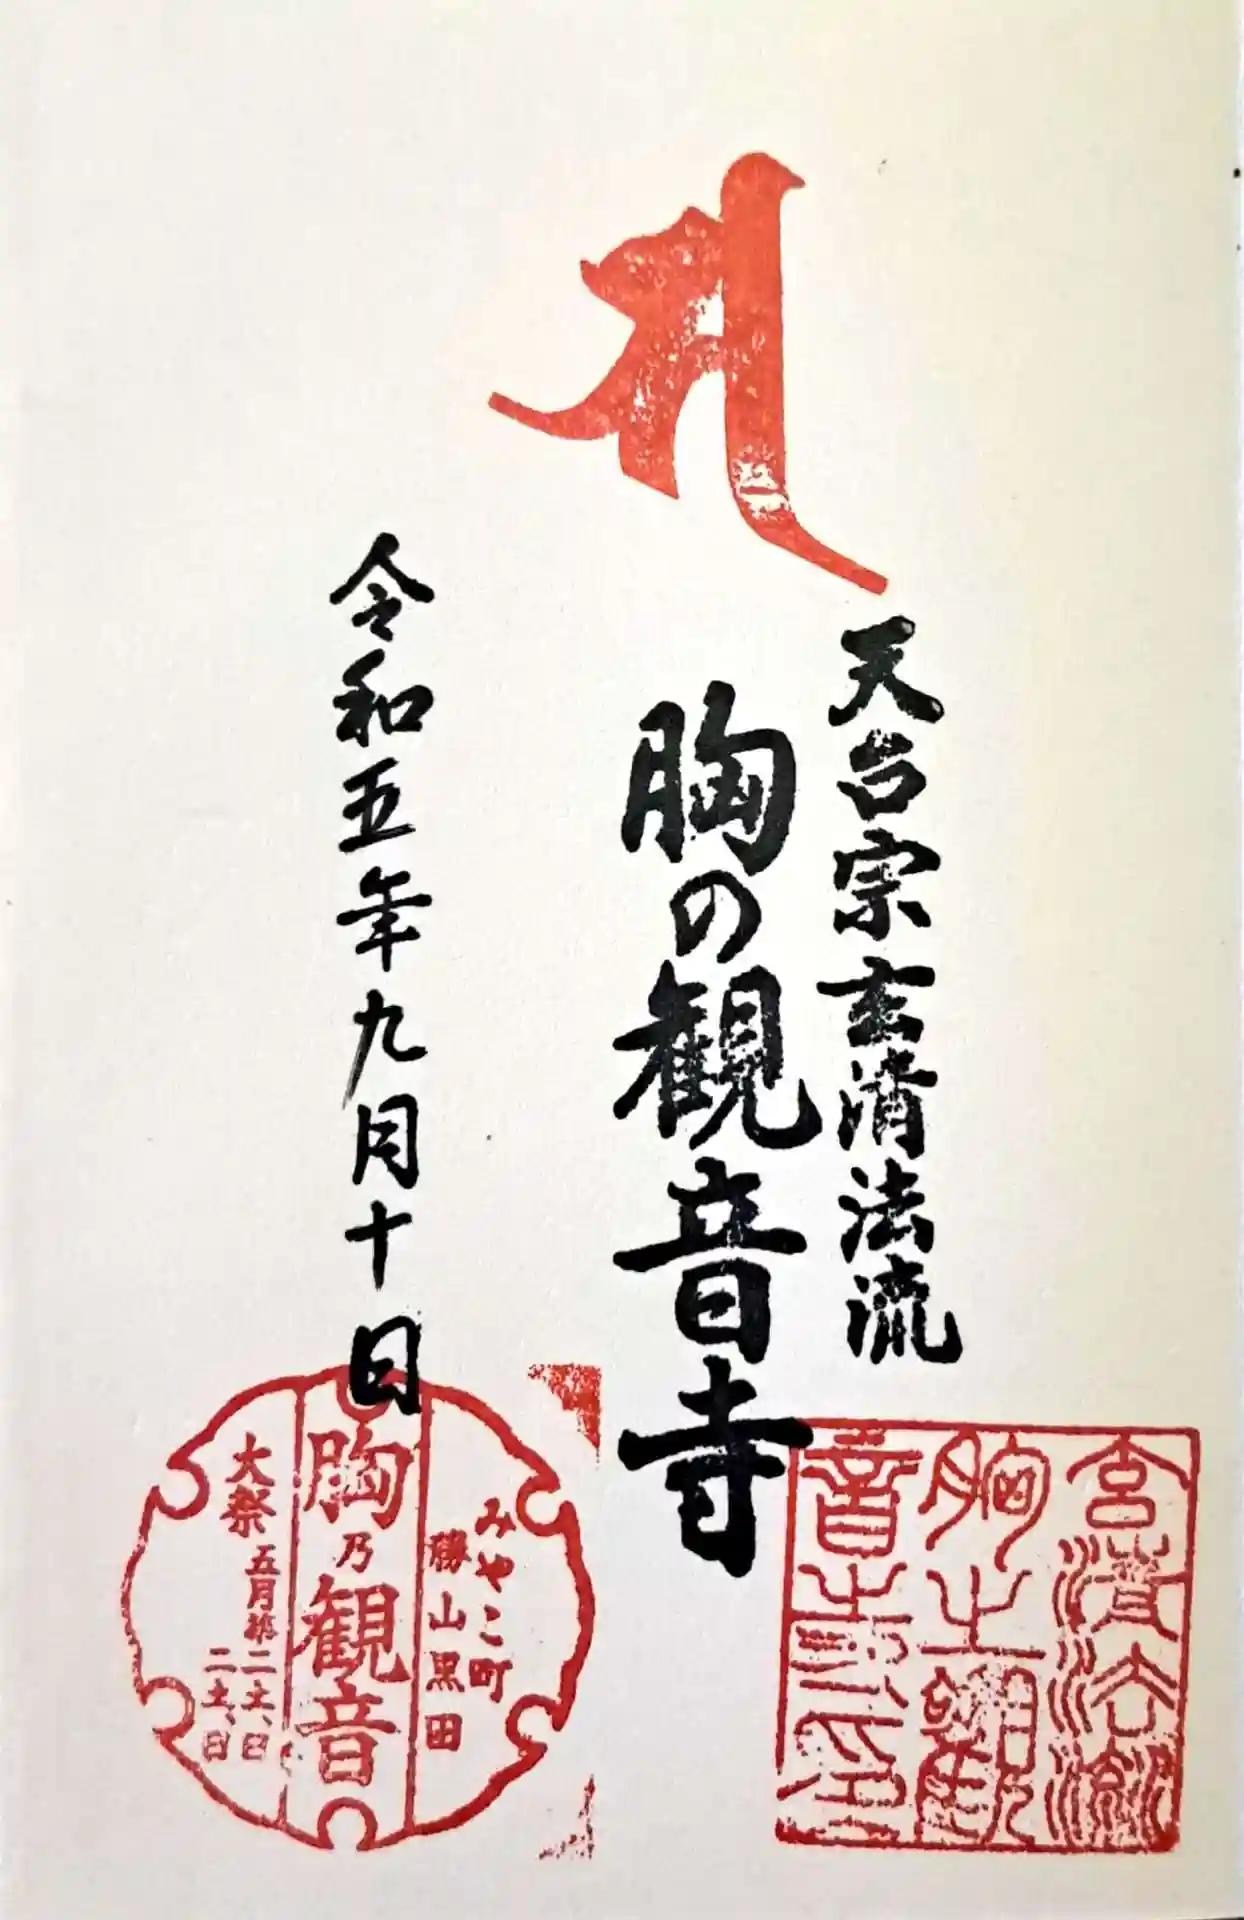 天台宗玄清法流
胸の観音寺
令和五年九月十日
玄清法流
胸之観
音寺印
みやこ町
勝山黒田
胸乃観音
大祭 五月第二土、日
二土、日